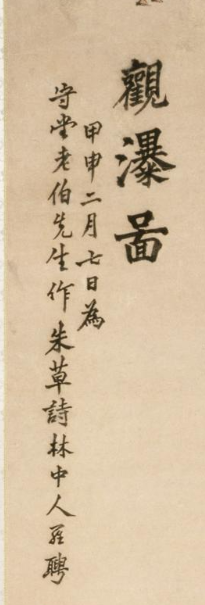 觀瀑啚
甲申二月七日為
守堂老伯先生作朱草詩林中人羅聘